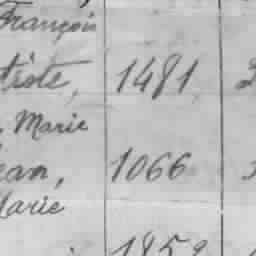 François
tiste, 1481
, Marie
ean, 1066
Marie